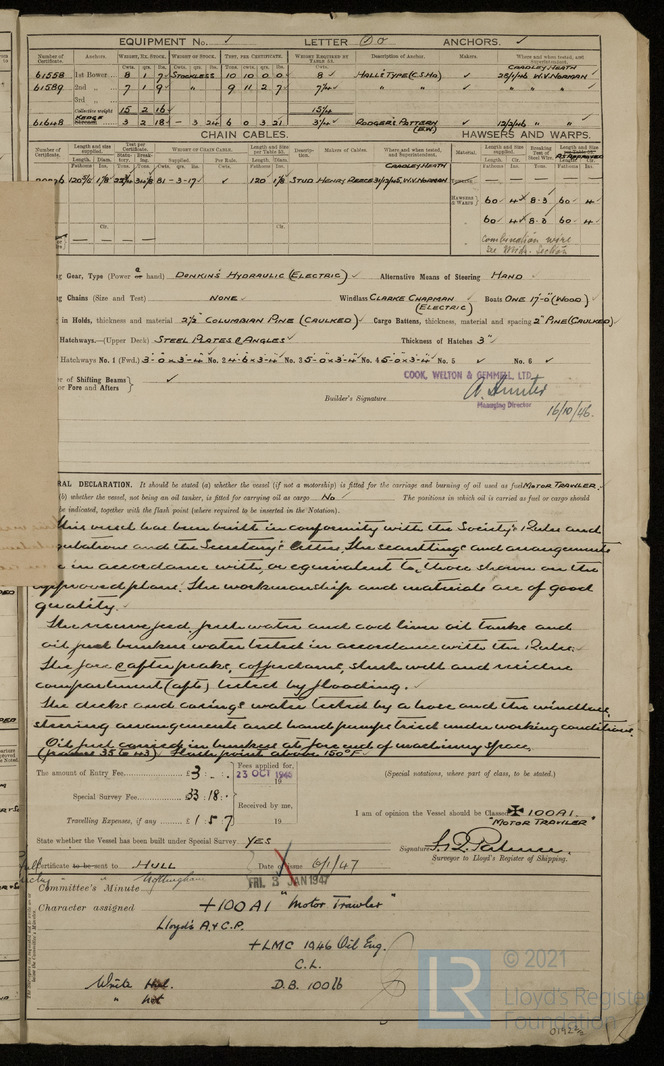 EQUIPMENT No. ✓ LETTER ANCHORS. ✓
Number of Certificate. Anchors. WEIGHT, EX. STOCK. WEIGHT OF STOCK. TEST, PER CERTIFICATE. WEIGHT REQUIRED BY TABLE 53. Description of Anchor. Makers. Where and when tested, and Superintendent.
Cwts. qrs. lbs. Cwts. qrs. lbs. Tons. cwts. qrs. lbs. Cwts. CRADLEY HEATH
61558 1st Bower 8 1 7 STOCKLESS 10 10 0 0 8 HALL'S TYPE (C.S.HD) 28/1/46 W.V. NORMAN
61589 2nd " 7 1 9 " 9 11 2 7 7¼ " " " "
3rd "
Collective weight 15 2 16 15¼
61648 KEDGE Stream 3 2 18 – 3 24 6 0 3 21 3¼ RODGER'S PATTERN 12/2/46 "
CHAIN CABLES. HAWSERS AND WARPS.
Number of Certificate. Length and size supplied. Test per Certificate. WEIGHT OF CHAIN CABLE. Length and size per Table 53. Description. Makers of Cables. Where and when tested, and Superintendent. Material. Length and size supplied. Breaking Test of Steel Wire.
Length. Diam. Supplied. Per Rule. Length. Diam. CRADLEY HEATH
81-3-17 ✓ 120 1⅛ STUD HENRY REECE 31/12/45, W.V. NORMAN
HAWSERS & WARPS 60 4 8·8 60 4
60 4 8·8 60 4
Combination wire
see Midr. Section
g Gear, Type (Power or hand) DONKINS HYDRAULIC (ELECTRIC) ✓ Alternative Means of Steering HAND ✓
g Chains (Size and Test) NONE ✓ Windlass CLARKE CHAPMAN (ELECTRIC) ✓ Boats ONE 17'-0" (WOOD) ✓
g in Holds, thickness and material 2½" COLUMBIAN PINE (CAULKED) ✓ Cargo Battens, thickness, material and spacing 2" PINE (CAULKED)
Hatchways.—(Upper Deck) STEEL PLATES & ANGLES ✓ Thickness of Hatches 3" ✓
Hatchways No. 1 (Fwd.) 3'-0"x3'-4" No. 2 4'-6"x3'-4" No. 3 5'-0"x3'-4" No. 4 5'-0"x3'-4" No. 5 ✓ No. 6 ✓
er of Shifting Beams
or Fore and Afters } ✓
COOK, WELTON & GEMMELL, LTD.
Builder's Signature A. Hunter
Managing Director
16/10/46.
RAL DECLARATION. It should be stated (a) whether the vessel (if not a motorship) is fitted for the carriage and burning of oil used as fuel MOTOR TRAWLER.
(b) whether the vessel, not being an oil tanker, is fitted for carrying oil as cargo No ✓ The positions in which oil is carried as fuel or cargo should
be indicated, together with the flash point (where required to be inserted in the Notation).
This vessel has been built in conformity with the Society's Rules and
and the Secretary's letters. The scantlings and arrangements
in accordance with, or equivalent to, those shown on the
approved plans. The workmanship and materials are of good
quality.
The reserve feed, fresh water and cod liver oil tanks and
oil fuel bunkers water tested in accordance with the Rules.
The fore & after peaks, cofferdams, slush well and
compartment (aft) tested by flooding. ✓
The decks and casings water tested by a hose and the windlass,
steering arrangements and hand pumps tried under working conditions.
Oil fuel carried in bunkers at fore end of machinery space,
(frames 35 to 43). Flash point above 150°F.
The amount of Entry Fee 3 : - : Fees applied for,
23 OCT 1946
Special Survey Fee 33 : 18 : -
Received by me,
Travelling Expenses, if any £ 1 : 5 : 7 19
(Special notations, where part of class, to be stated.)
I am of opinion the Vessel should be Classed ✠ 100A1.
"MOTOR TRAWLER"
State whether the Vessel has been built under Special Survey YES
Signature
Surveyor to Lloyd's Register of Shipping.
Certificate to be sent to HULL Date of issue 6/1/47
Nottingham
FRI. 3 JAN 1947
Committee's Minute
Character assigned +100A1 "Motor Trawler"
Lloyd's A&C.P.
+LMC 1946 Oil Eng.
C.L.
Write Hul. D.B. 100 lb
" Not
LR
© 2021
Lloyd's Register
Foundation